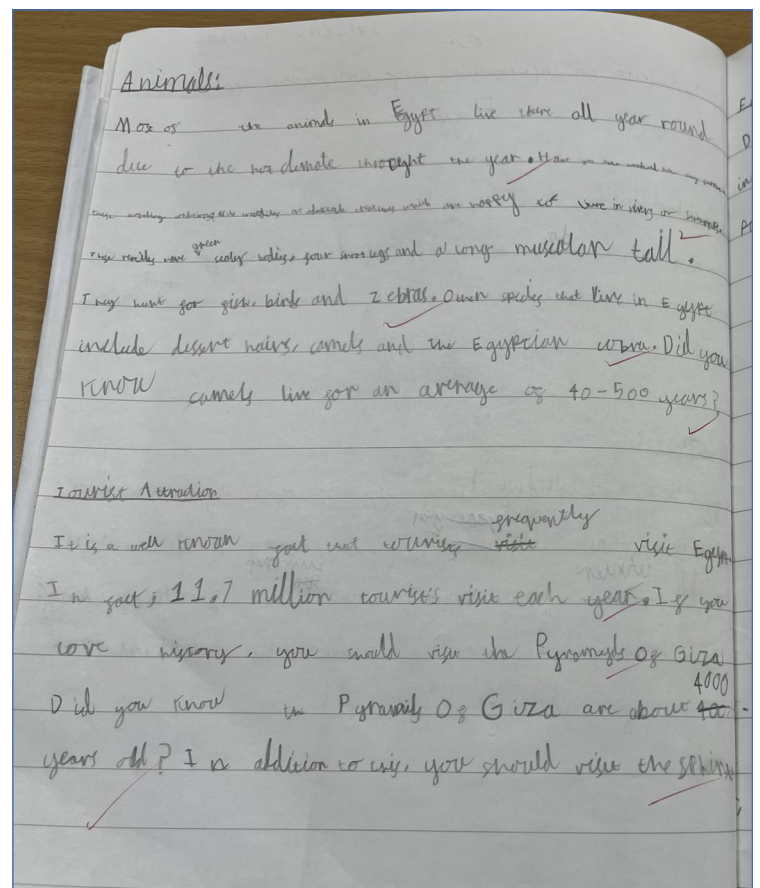 Animals:
Most of the animals in Egypt live there all year round
due to the hot climate throught the year. Have you ever
These reptiles have green scaley bodies, four short legs and a long muscalan tail.
They hunt for fish, birds and zebras. Other species that live in Egypt
include dessert hairs, camels and the Egyptian cobra. Did you
know camels live for an average of 40-500 years?
Tourist Attraction
It is a well known fact that tourists frequently visit Egypt.
In fact, 11.7 million tourist's visit each year. If you
love history, you should visit the Pyramyds Of Giza
Did you know the Pyramids Of Giza are about 4000
years old? In addition to this, you should visit the sphinx